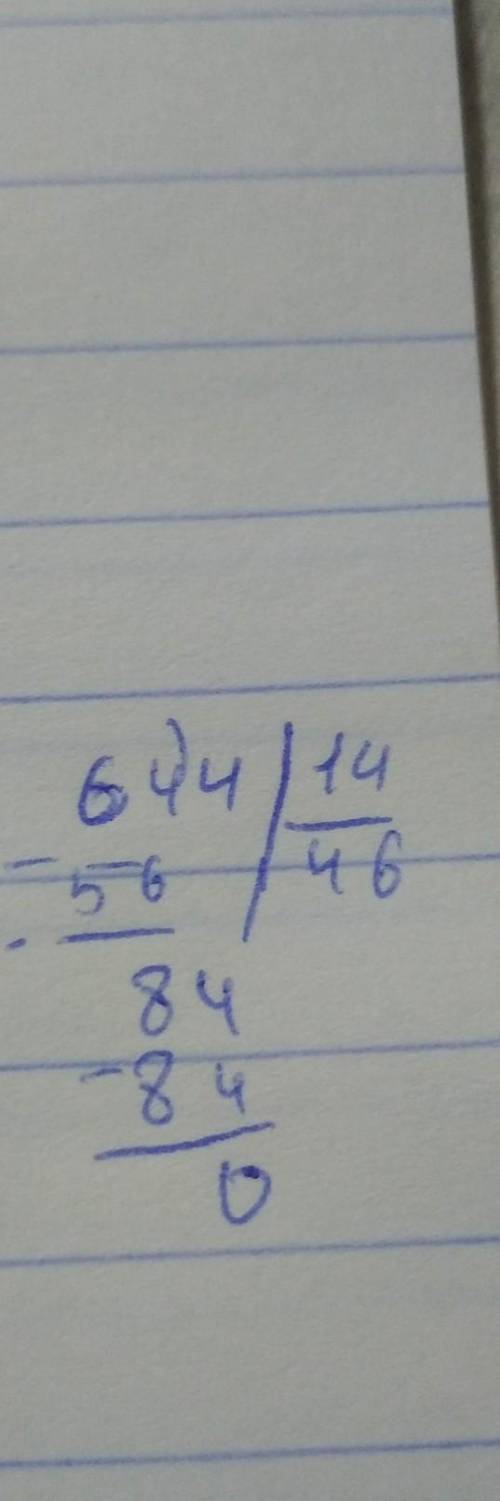 644 | 14
- 56 | 46
84
- 84
0